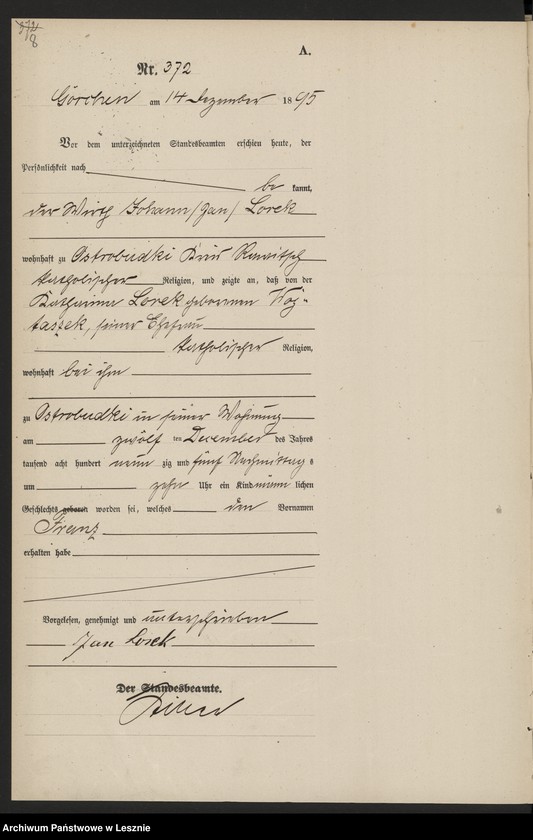 372
8
A.
Nr. 372
Görchen am 14 Dezember 1895
Vor dem unterzeichneten Standesbeamten erschien heute, der
Persönlichkeit nach
be kannt,
der Wirth Johann /Jan/ Lorek
wohnhaft zu Ostrobudki Kreis Rawitsch
katholischer Religion, und zeigte an, daß von der
Katharina Lorek geborenen Woj-
taszek, seiner Ehefrau
katholischer Religion,
wohnhaft bei ihm
zu Ostrobudki in seiner Wohnung
am zwölf ten December des Jahres
tausend acht hundert neun zig und fünf Nachmittag s
um zehn Uhr ein Kind männ lichen
Geschlechts geboren worden sei, welches den Vornamen
Franz
erhalten habe
Vorgelesen, genehmigt und unterschrieben
Jan Lorek
Der Standesbeamte.
Archiwum Państwowe w Lesznie